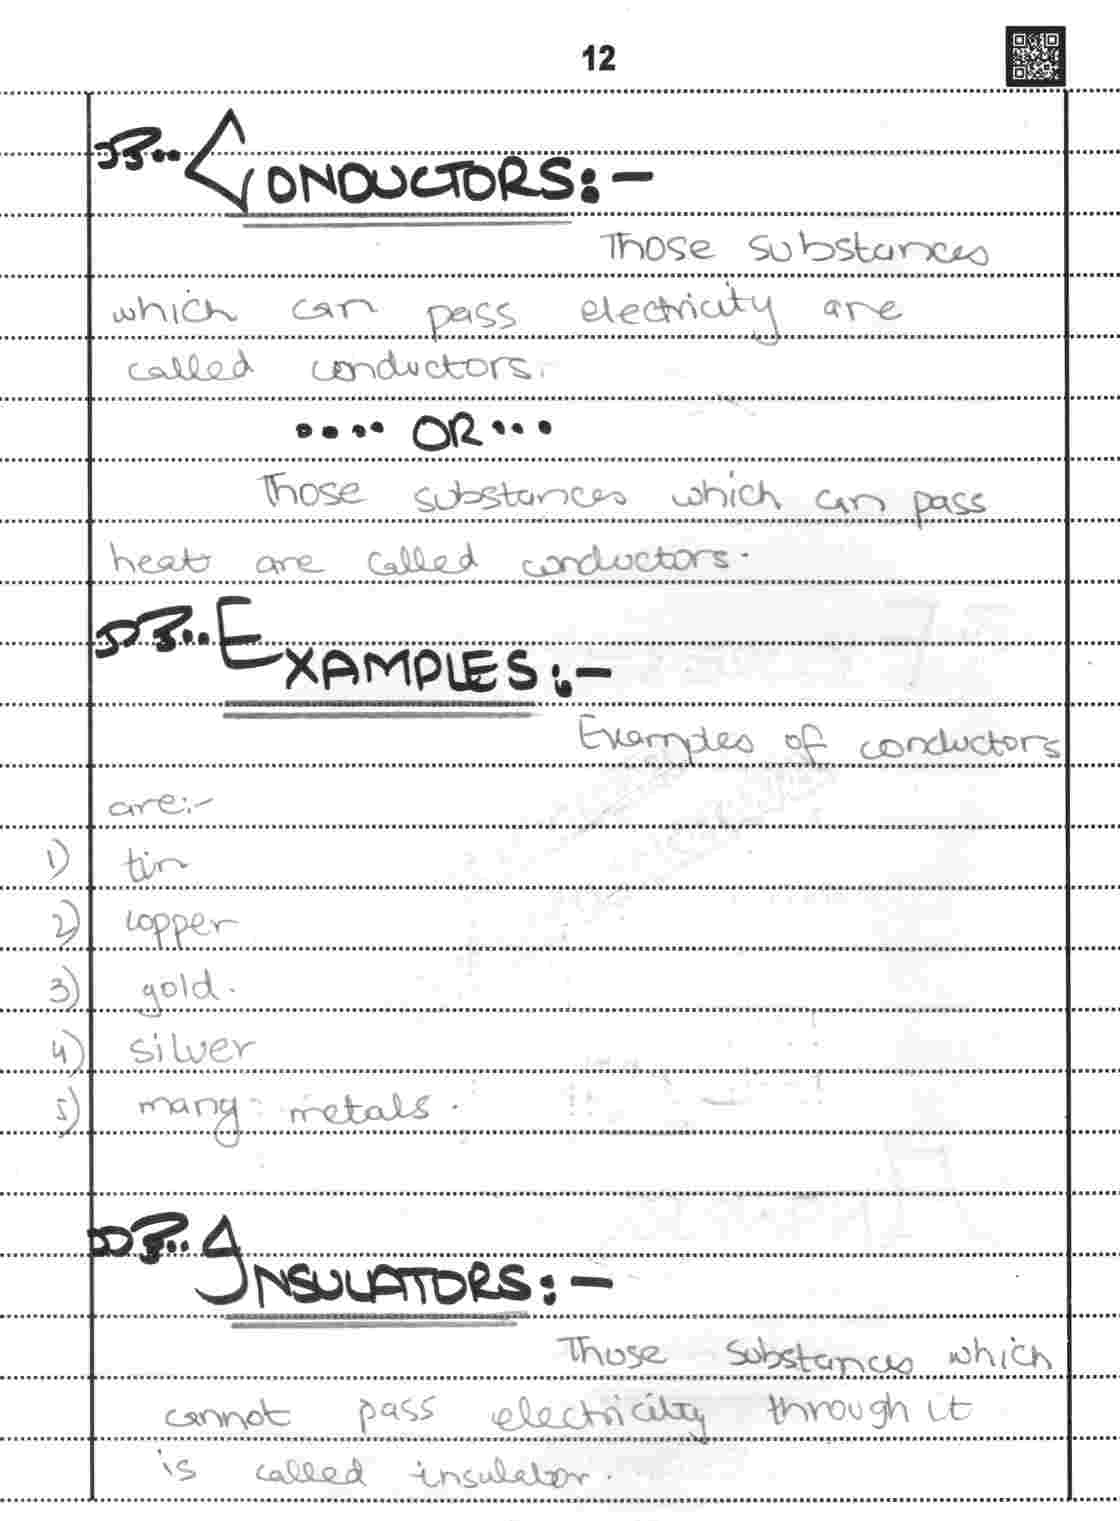 12
CONDUCTORS:-
Those substances
which can pass electricity are
called conductors.
.... OR ...
Those substances which can pass
heat are called conductors.
EXAMPLES:-
Examples of conductors
are:-
1) tin
2) copper
3) gold.
4) silver
5) many metals.
INSULATORS:-
Those substances which
cannot pass electricity through it
is called insulator.